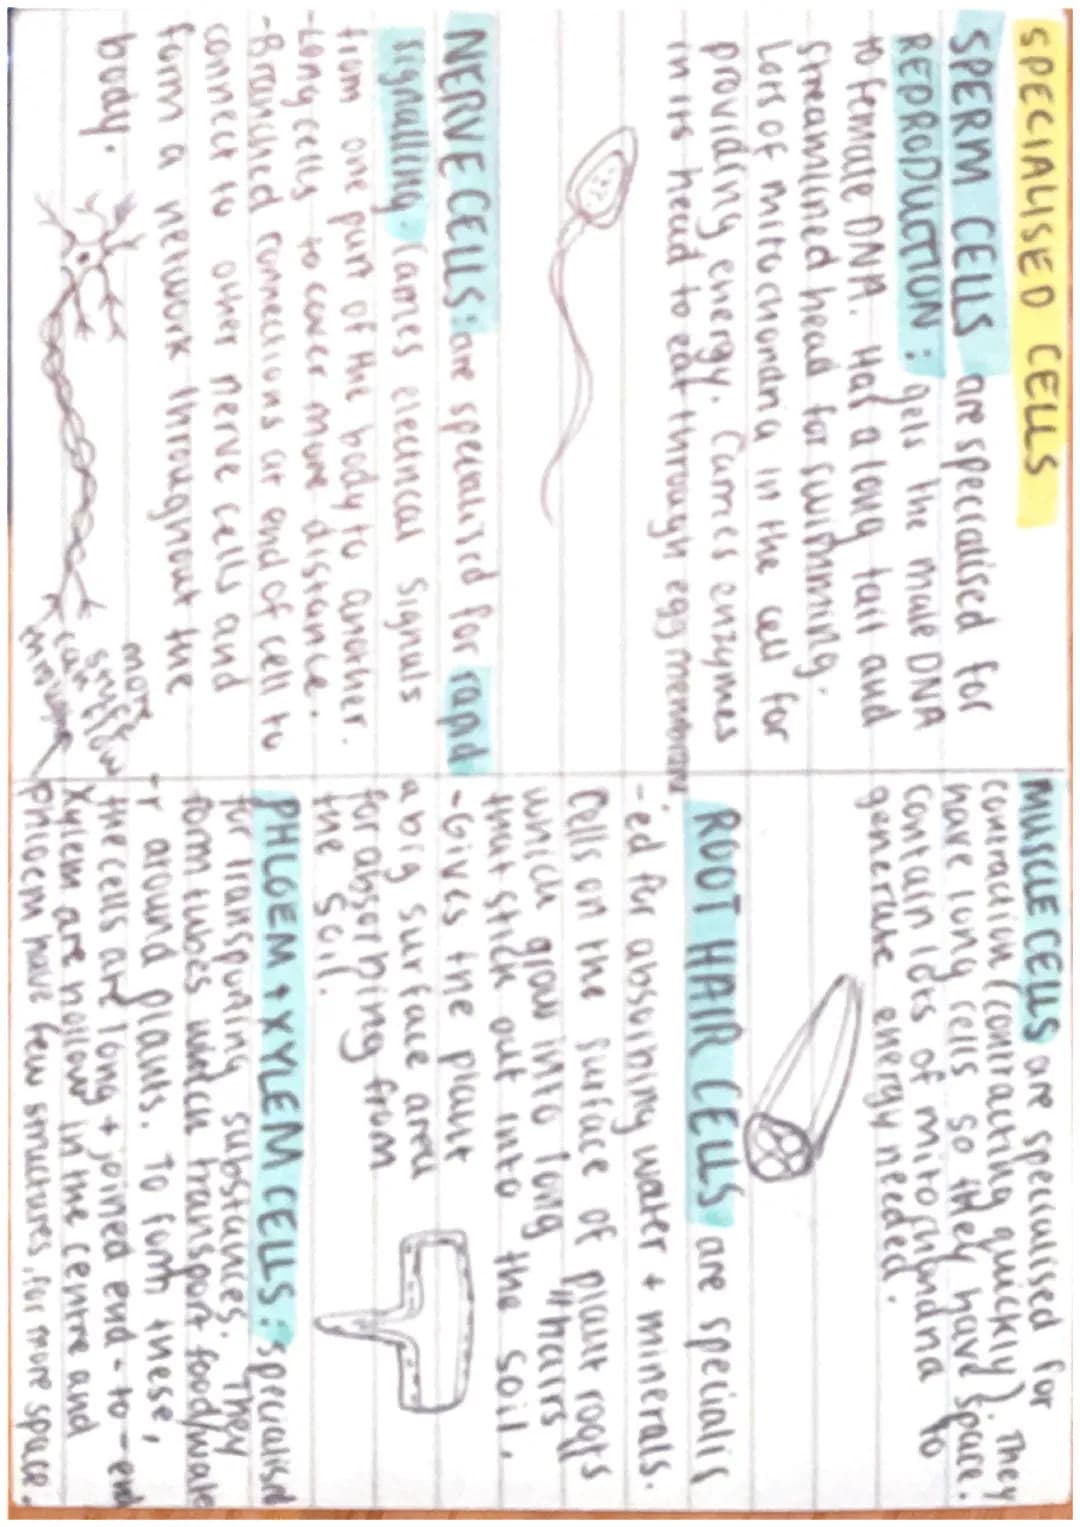 SPECIALISED CELLS
SPERM CELLS are specialised for
REPRODUCTION: gets the male DNA
to female DNA. Has a long tail and
streamlined head for swimming.
Lots of mitochondria in the cell for
providing energy. Carries enzymes
in its head to eat through egg membrane
NERVE CELLS: are specialised for rapid
signalling. Carries electrical signals
from one part of the body to another.
-Long cells to cover more distance.
-Branched connections at end of cell to
connect to other nerve cells and
form a network throughout the
body.
MUSCLE CELLS are specialised for
contraction (contracting quickly). They
have long cells so they have space.
contain lots of mitochondria to
generate energy needed.
ROOT HAIR CELLS are specialis
-ed for absorbing water + minerals.
Cells on the surface of plant roots
which grow into long "hairs"
that stick out into the soil.
-Gives the plant
a big surface area
for absorbing from
the soil.
PHLOEM + XYLEM CELLS: specialised
for transporting substances. They
form tubes which transport food/wate
-r around plants. To form these,
the cells are long + joined end-to-end
Xylem are hollow in the centre and
phloem have few structures, for more space.
more
stuff
can flow
through